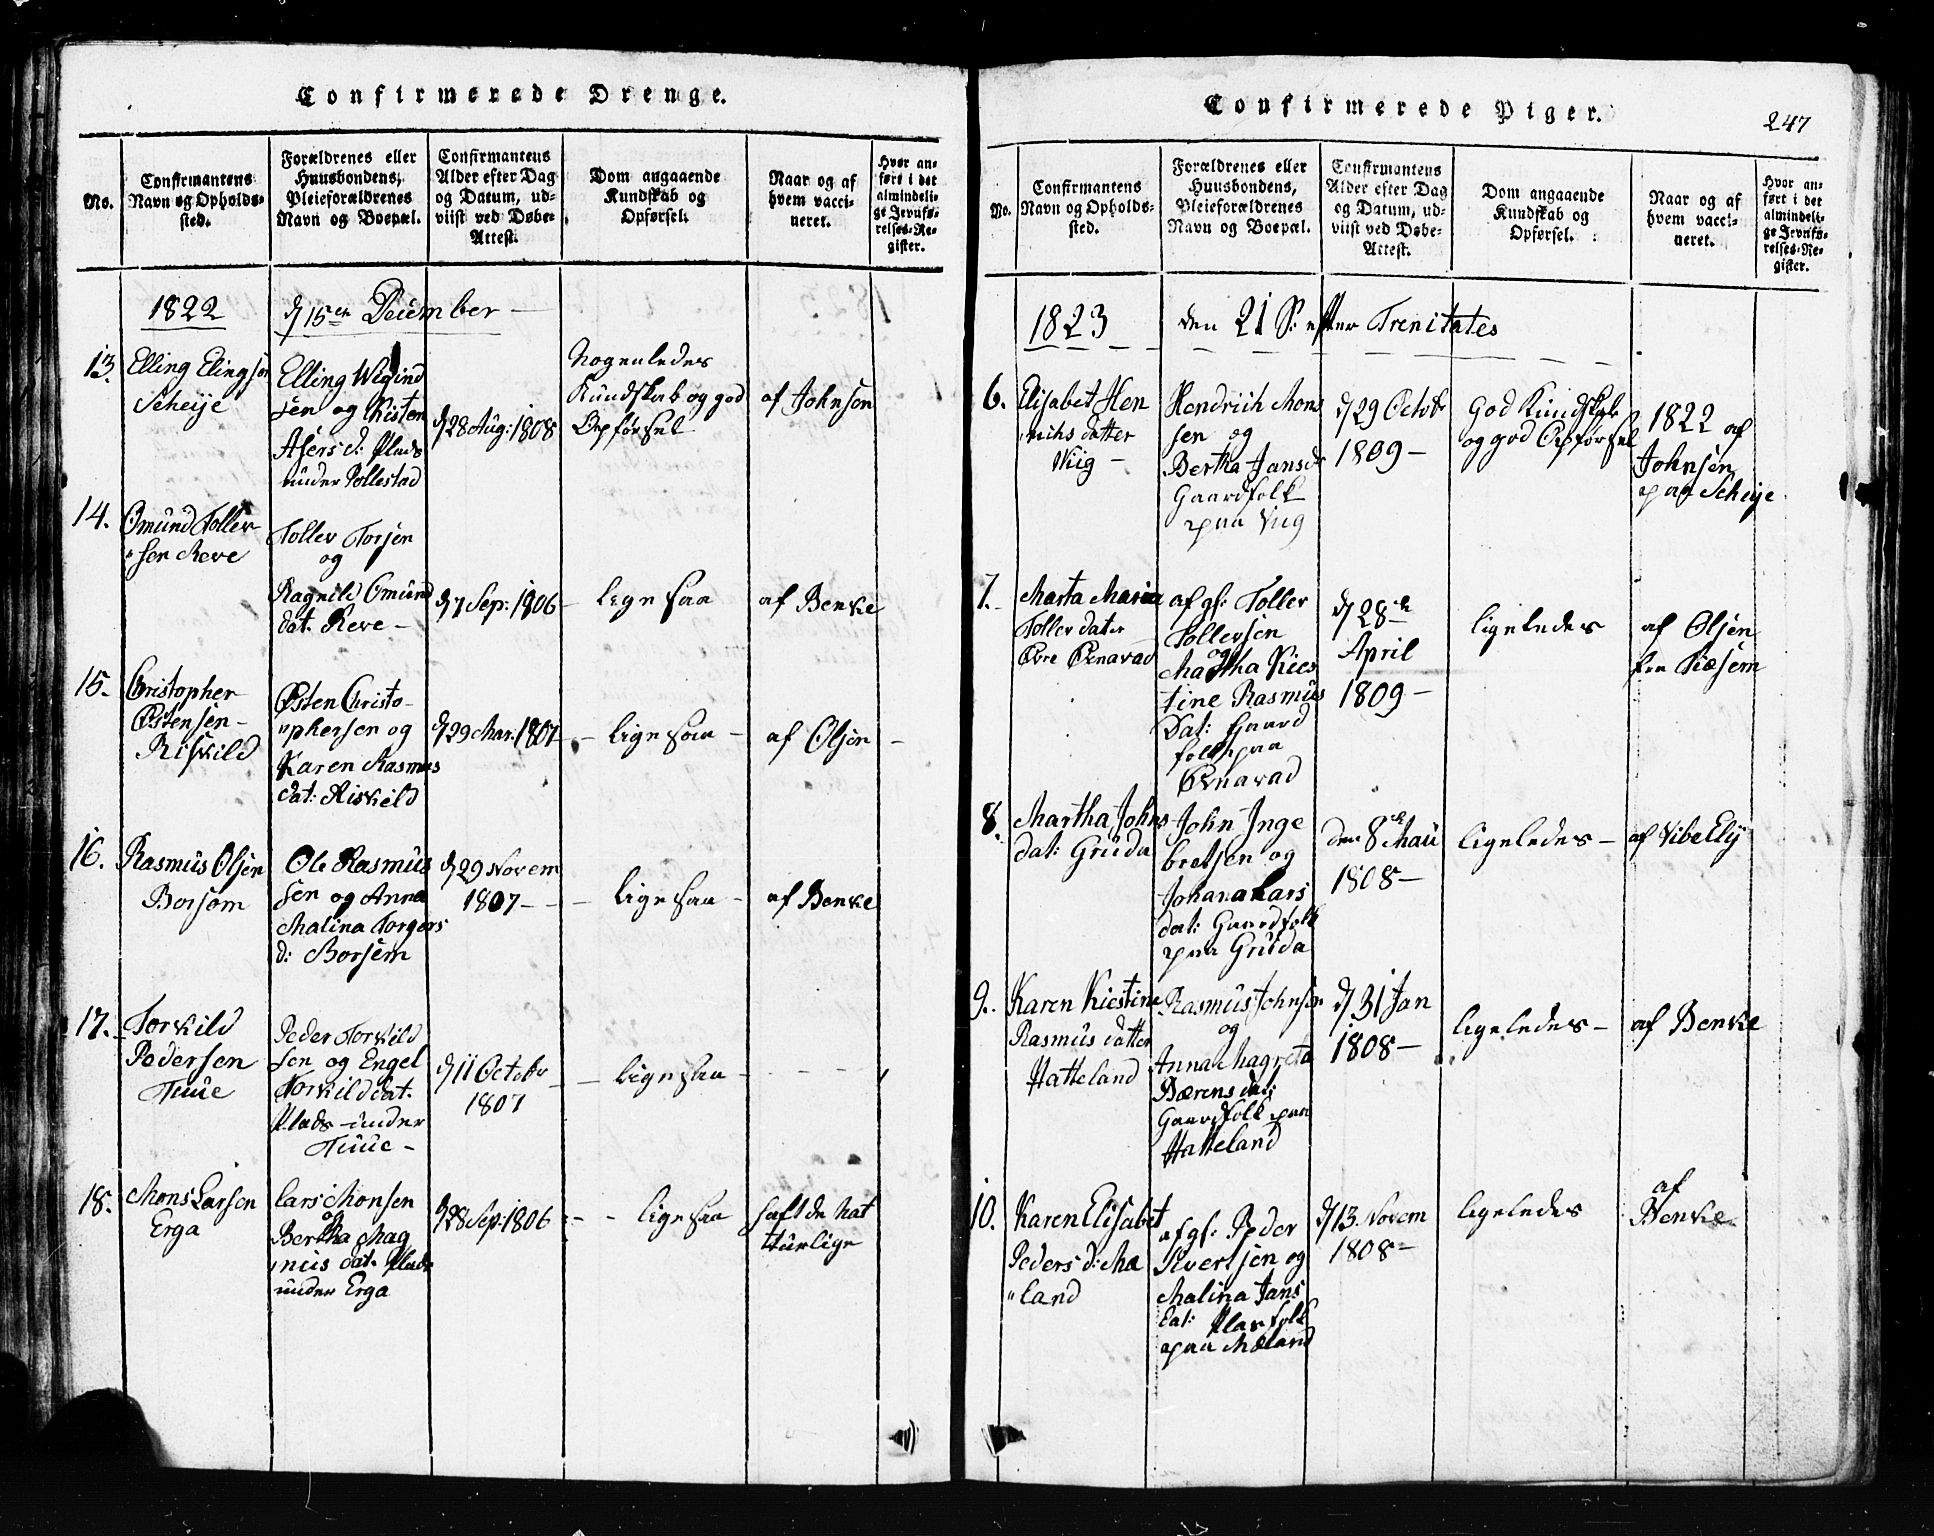 Confirmerede Drenge.
No.
Confirmantens
Navn og Opholds-
sted.
Forældrenes eller
Huusbondens,
Pleieforældrenes
Navn og Boepæl.
Confirmantens
Alder efter Dag
og Datum, ud-
viist ved Døbe-
Attest.
Dom angaaende
Kundskab og
Opførsel.
Naar og af
hvem vacci-
neret.
Hvor an-
ført i det
almindeli-
ge Jevnfø-
relses-Re-
gister.
1822
d 15en December
13.
Elling Elingsøn
Scheije
Elling Wigind
sen og Kisten
Asers d: Plads
under Pollestad
d 28 Aug: 1808
Nogenledes
Kundskab og god
Opførsel
af Johnsen
14.
Omund Toller
sen Reve
Tollev Torsen
og
Ragnild Omund
dat. Reve -
d 7 Sep: 1806 -
ligesaa
af Benke
15.
Christopher
Østensen -
Risvild
Østen Christo-
phersen og
Karen Rasmus
dat: Riskild
d 29 Mar: 1807 -
- ligesaa -
af Olsen -
16.
Rasmus Olsen
Borsøm
Ole Rasmus
sen og Anna
Malina Torgers
d: Borsem
d 29 Novem
1807 - -
- ligesaa -
af Benke
17.
Torkild
Pedersen
Tuue
Peder Torkild
sen og Engel
Torkild dat.
Plads under
Tuue -
d 11 Octobr
1807
- ligesaa -
18.
Mons Larsen
Erga
Lars Monsen
og
Bertha Mag
nus dat. Plads
under Erga
d 28 Sep: 1806
- - ligesaa
haft de nat
turlige
Confirmerede Piger.
247
No.
Confirmantens
Navn og Opholds-
sted.
Forældrenes eller
Huusbondens,
Pleieforældrenes
Navn og Boepæl.
Confirmantens
Alder efter Dag
og Datum, ud-
viist ved Døbe-
Attest.
Dom angaaende
Kundskab og
Opførsel.
Naar og af
hvem vacci-
neret.
Hvor an-
ført i det
almindeli-
ge Jevnfø-
relses-Re-
gister.
1823
den 21 S: efter Trenitates
6.
Elisabet Hen
richs datter
Wiig -
Hendrich Mons
sen og
Bertha Jans d
Gaardfolk
paa Viig
d 29 Octobr
1809 -
God Kundskab
og god Opførsel
1822 af
Johnsen
paa Scheije
7.
Marta Maria
Toller dater
Øvre Øxnavad
af gf: Toller
Tollevsen
og
Martha Kies
tine Rasmus
Dat: Gaard
folk paa
Øxnavad
d 28de
April
1809 -
ligeledes
af Olsen
fra Tiøsem
8.
Martha Johns
dat: Gruda
John Inge
bretsen og
Johana Lars
dat: Gaardfolk
paa Gruda
den 8de Maii
1808 -
ligeledes -
af Vibe Ely
9.
Karen Kiestine
Rasmus datter
Hatteland
Rasmus Johnsen
og
Anna Magreta
Børens dat:
Gaardfolk paa
Hatteland
d 31 Jan
1808 -
ligeledes -
af Benke
10.
Karen Elisabet
Peders d: Mæ
land
af gf: Peder
Ivertsen og
Malina Jans
dat: Plasfolk
paa Mæland
d 13 Novem
1808 -
ligeledes
af
Benke